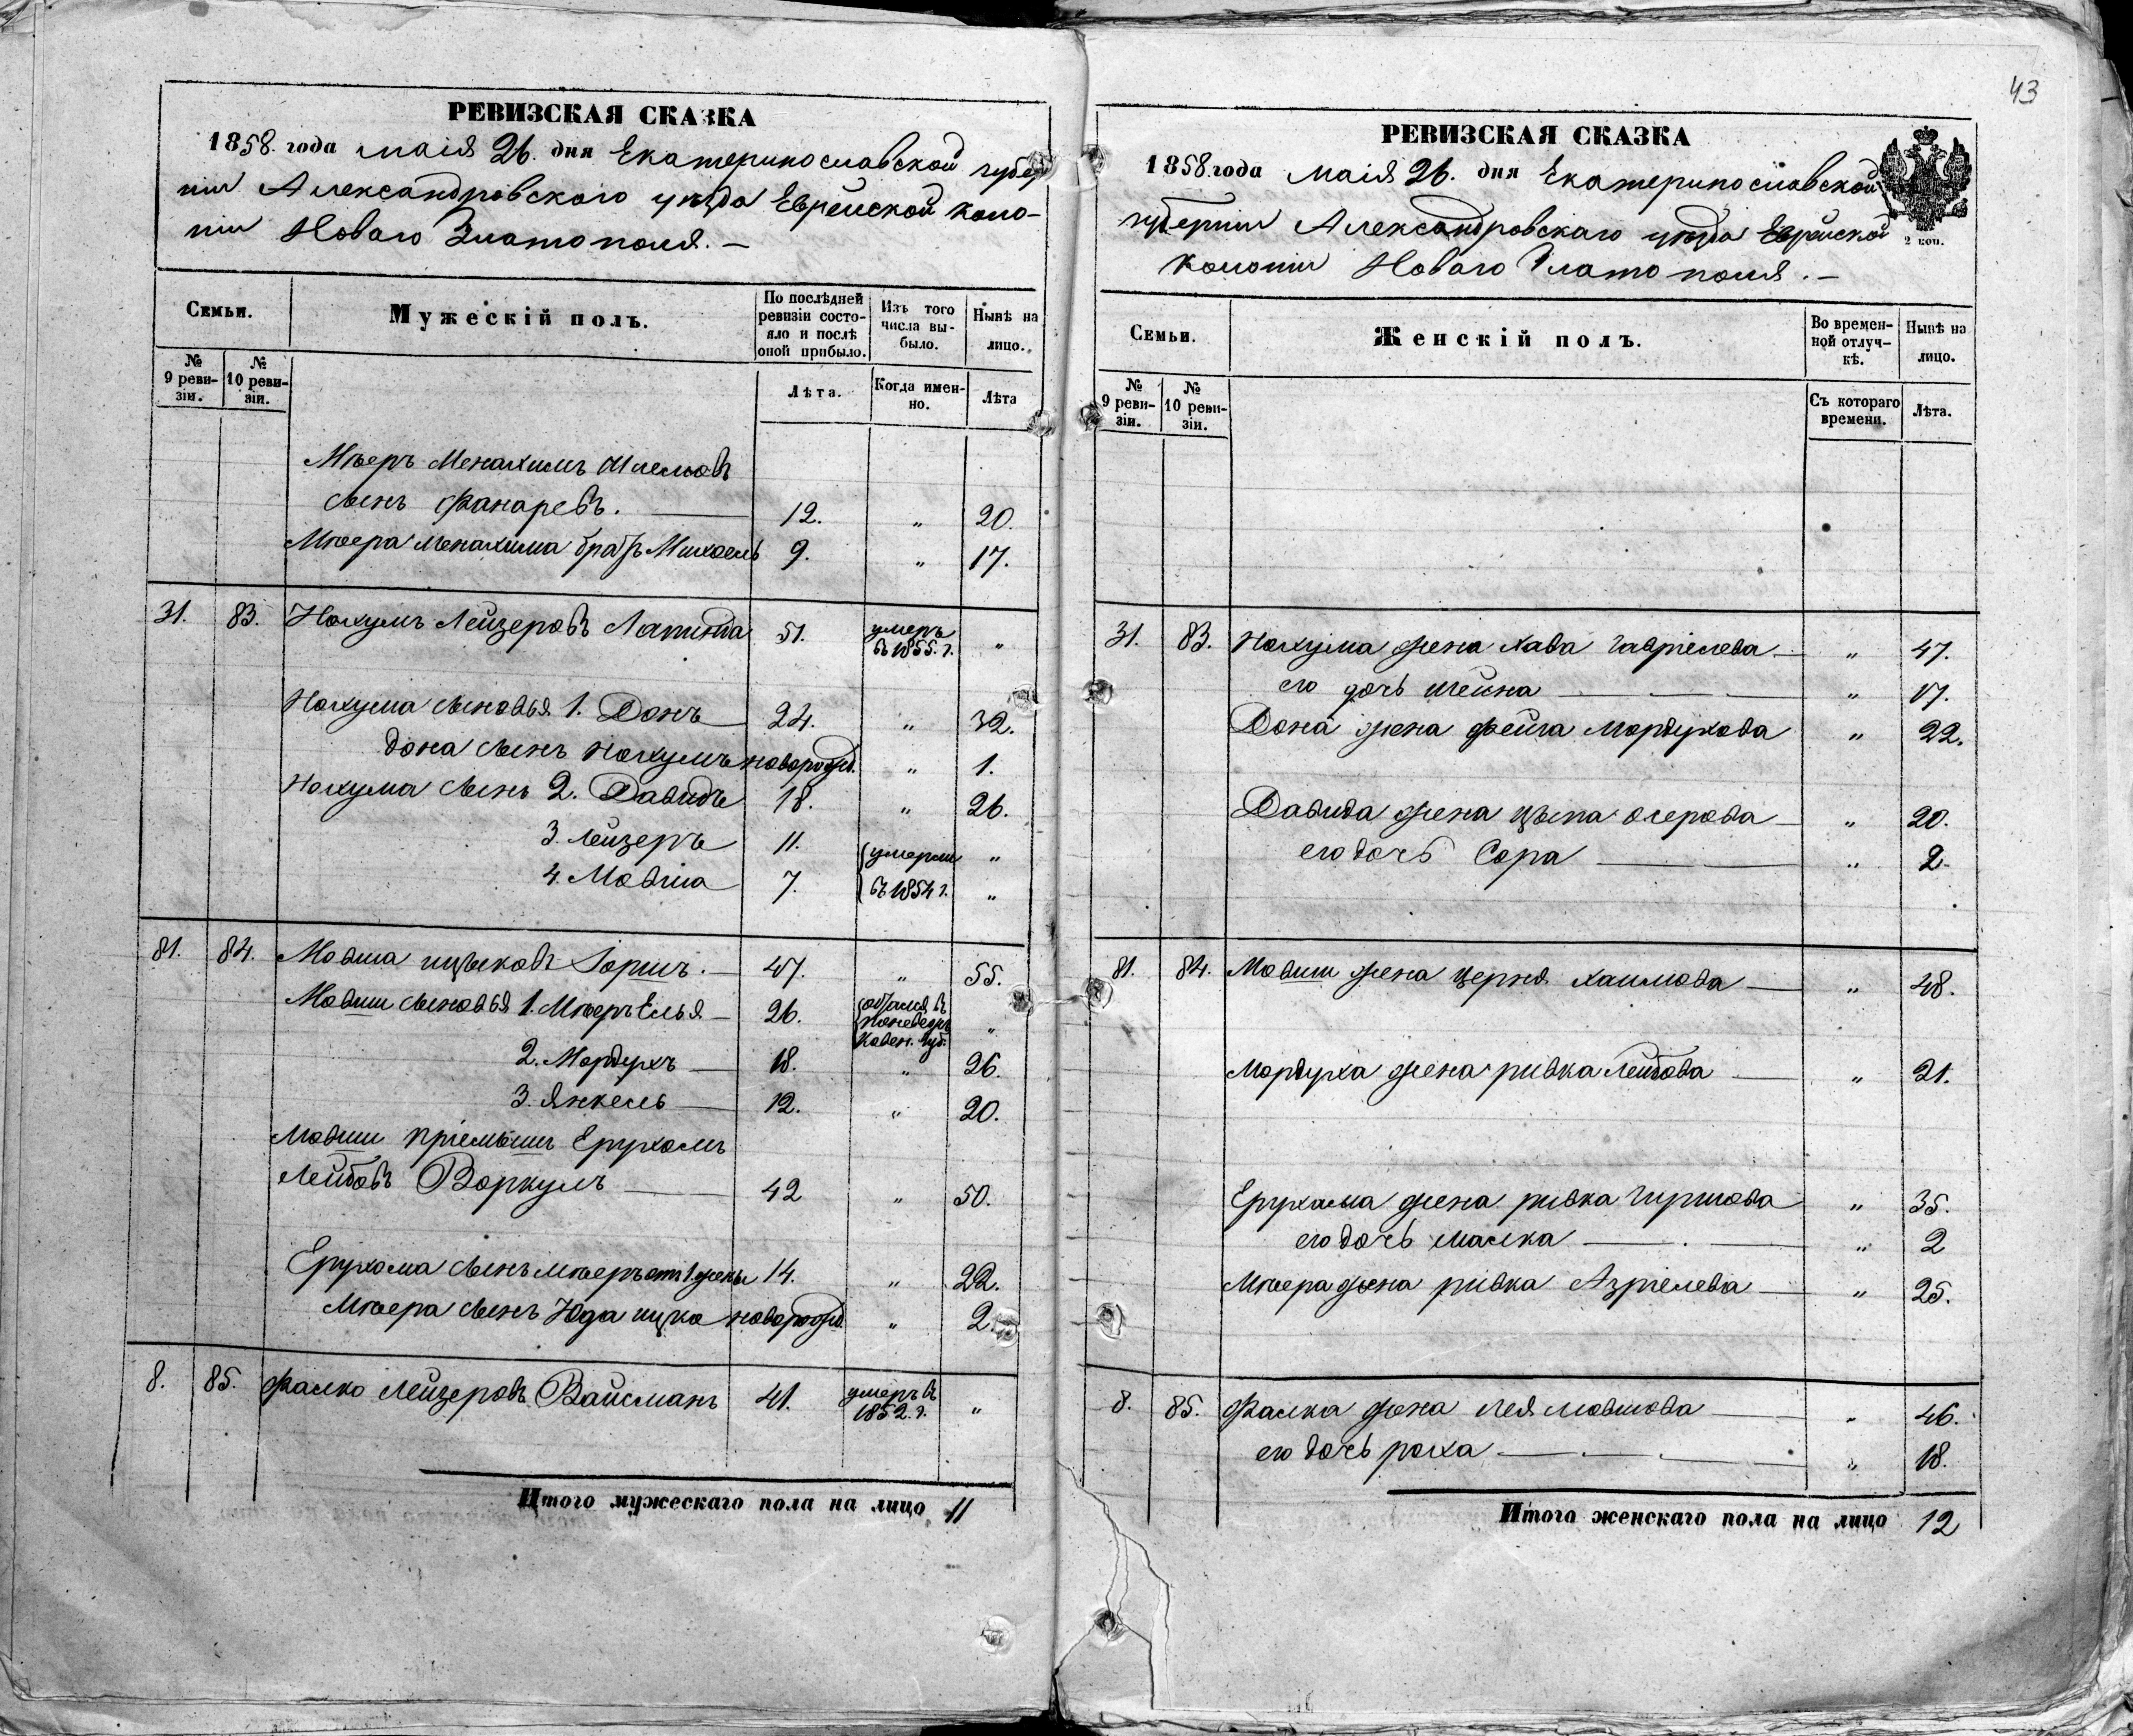 43
РЕВИЗСКАЯ СКАЗКА
1858. года маія 26. дня Екатеринославской губер
ніи Александровского уѣзда Еврейской коло-
ніи Новаго Златополя. —
Семьи.
Мужескій полъ.
По послѣдней ревизіи состояло и послѣ оной прибыло.
Изъ того числа выбыло.
Нынѣ на лицо.
№ 9 ревизіи.
№ 10 ревизіи.
Лѣта.
Когда именно.
Лѣта
Мѣеръ Менахимъ Шлемовъ
сынъ Фанаревъ. — 12. " 20.
Мѣера Менахима братъ Михоель 9. " 17.
31. 83. Нохумъ Лейзеровъ 51. умеръ въ 1855. г. "
Нохума сыновья 1. Донъ 24. " 32.
Дона сынъ Нохумъ новорожд. " 1.
Нохума сынъ 2. Давидъ 18. " 26.
3. Лейзеръ 11. умерли "
4. Мовша 7. въ 1854 г. "
81. 84. Мовша Ицыковъ 47. " 55.
Мовши сыновья 1. Мѣеръ Елья — 26. остался въ Поневеж. Ковен. губ. "
2. Мордухъ — 18. " 26.
3. Янкель — 12. " 20.
Мовши пріемышъ Ерухомъ
Лейбовъ Воркулъ — 42 " 50.
Ерухома сынъ Мѣеръ отъ 1 жены 14. " 22.
Мѣера сынъ Юда Ицко новорожд. " 2.
8. 85. Фалко Лейзеровъ Вайсманъ 41. умеръ въ 1852. г. "
Итого мужескаго пола на лицо 11
РЕВИЗСКАЯ СКАЗКА
1858. года маія 26. дня Екатеринославской
губерніи Александровскаго уѣзда Еврейской
колоніи Новаго Златополя. —
2 коп.
Семьи.
Женскій полъ.
Во временной отлучкѣ.
Нынѣ на лицо.
№ 9 ревизіи.
№ 10 ревизіи.
Съ котораго времени.
Лѣта.
31. 83. Нохума жена Хава Гавріелева — " 47.
его дочь Шейна — " 17.
Дона жена Фейга Мордухова " 22.
Давида жена Цыпа Озерова — " 20.
его дочь Сора — " 2.
81. 84. Мовши жена Церня Хаимова — " 48.
Мордуха жена Ривка Лейбова — " 21.
Ерухама жена Ривка Гиршова " 35.
его дочь Малка — " 2
Мѣера жена Ривка Азріелева — " 25.
8. 85. Фалка жена Лея Мовшова — " 46.
его дочь Роха — " 18.
Итого женскаго пола на лицо 12